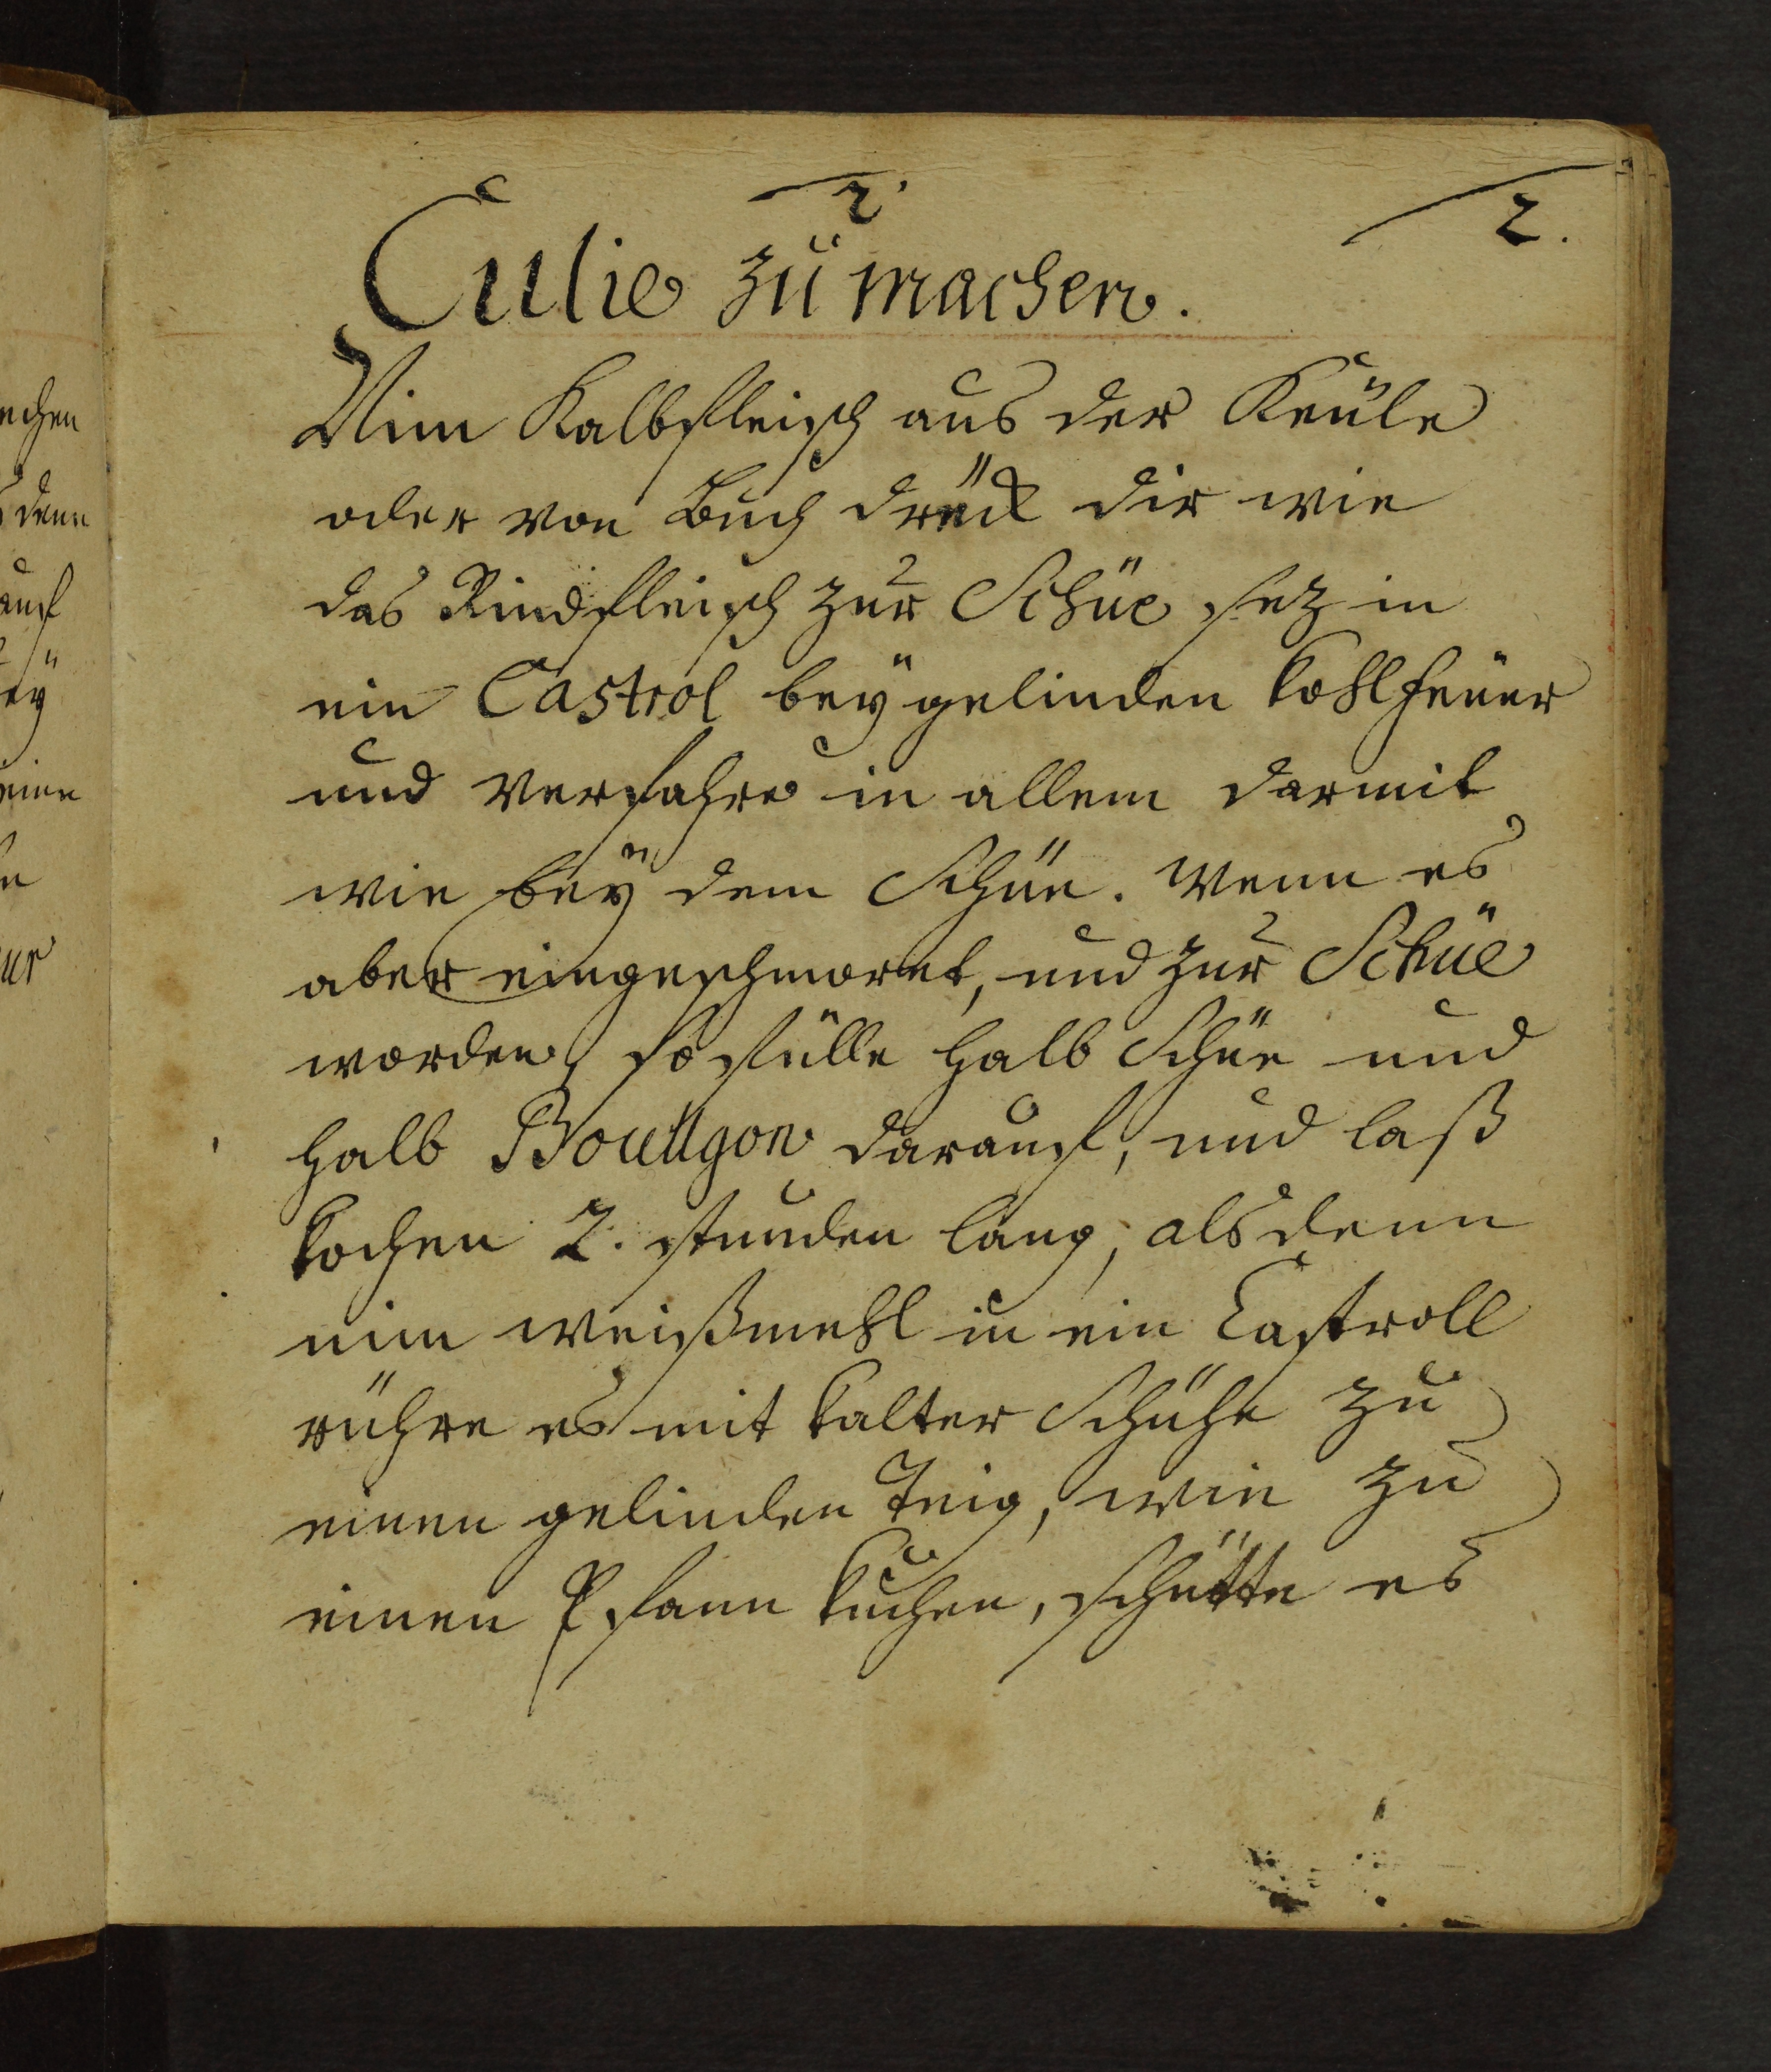 2.
2.
Culie zu machen.
Nim Kalbfleisch aus der Keule
oder von Buch drück dir wie
das Rindfleisch zur Schüe sez in
ein Castrol beÿ gelinden kohlfeuer
und verfahre in allem darmit
wie beÿ dem Schüe. wenn es
aber eingeschmoret, und zur Schüe
worden, so fülle halb Schüe und
halb Bouillgon darauf, und laß
kochen 2. stunden lang, alsdenn
nim weißmehl in ein Castroll
rühre es mit kalter Schühe zu
einen gelinden Teig, wie zu
einen Pfann kuchen, schütte es
echen
denn
auf
eÿ